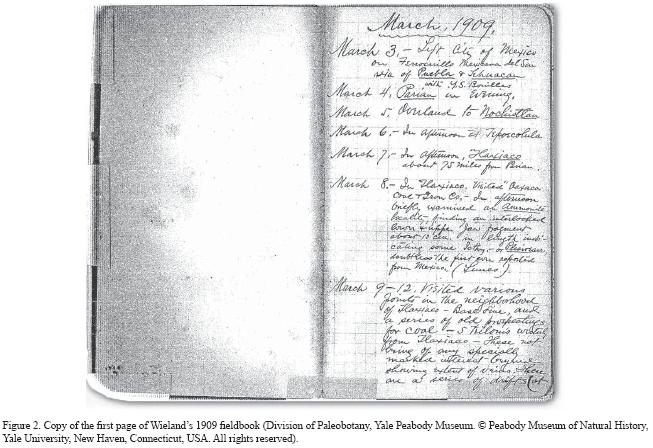 March, 1909.
March 3, - Left City of Mexico
on Ferrocarrile Mexicano del Sur
via of Puebla & Tehuacan
with Y.S. Bonillas
March 4, Parian in Evening,
March 5, Overland to Nochixtlan
March 6, - In afternoon at Teposcolula
March 7, - In afternoon, Tlaxiaco
about 75 miles from Parian.
March 8. - In Tlaxiaco, Visited Oaxaca
Coal & Iron Co, - In afternoon
briefly examined an Ammonite
locality, finding an interlocked
lower & upper jaw fragment
about 10 cm. in length indi-
cating some
doubtless the first ever reported
from Mexico (
March 9-12. Visited various
points in the neighborhood
of Tlaxiaco - Base line, and
a series of old prospectings
for coal - 5 kiloms
from Tlaxiaco - These not
being of any specially
marked interest beyond
showing extent of veins. There
are a series of drifts (at
Figure 2. Copy of the first page of Wieland's 1909 fieldbook (Division of Paleobotany, Yale Peabody Museum. © Peabody Museum of Natural History,
Yale University, New Haven, Connecticut, USA. All rights reserved).